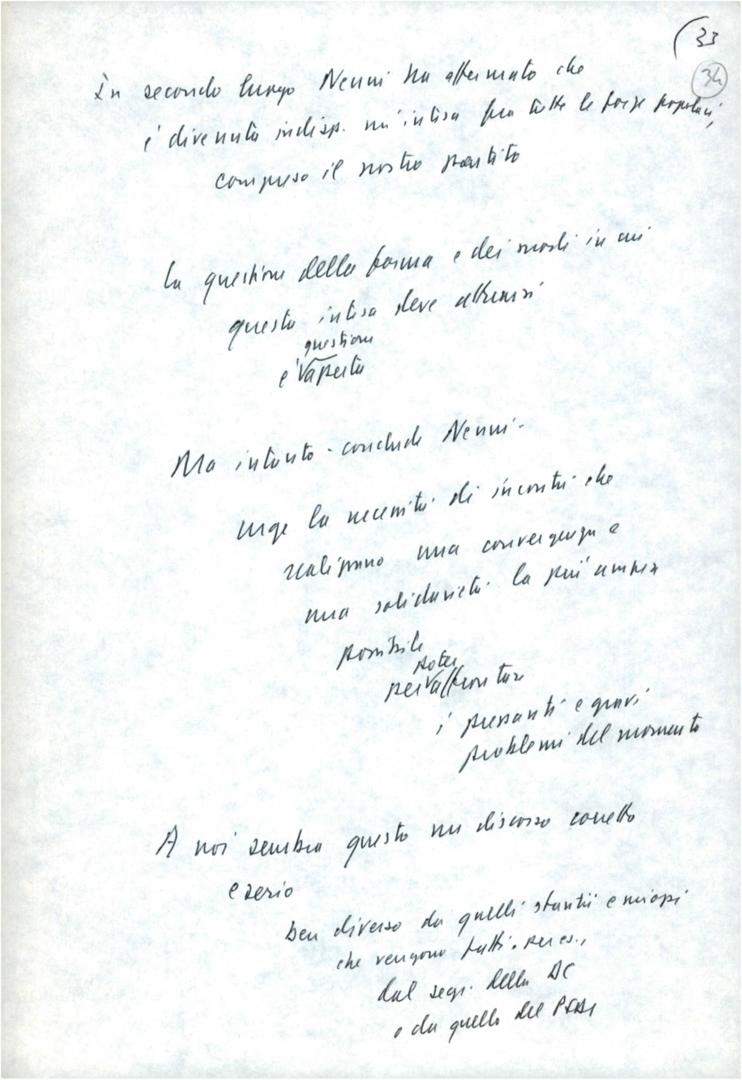 33
34
In secondo luogo Nenni ha affermato che
è divenuta indisp. un'intesa fra tutte le forze popolari,
compreso il nostro partito
La questione della forma e dei modi in cui
questa intesa deve attuarsi
questione
è aperta
Ma intanto - conclude Nenni -
urge la necessità di incontri che
realizzino una convergenza e
una solidarietà la più ampia
possibile
poter
per affrontare
i pressanti e gravi
problemi del momento
A noi sembra questo un discorso corretto
e serio
ben diverso da quelli stantii e miopi
che vengono fatti, per es.,
dal segr. della DC
o da quello del PSDI